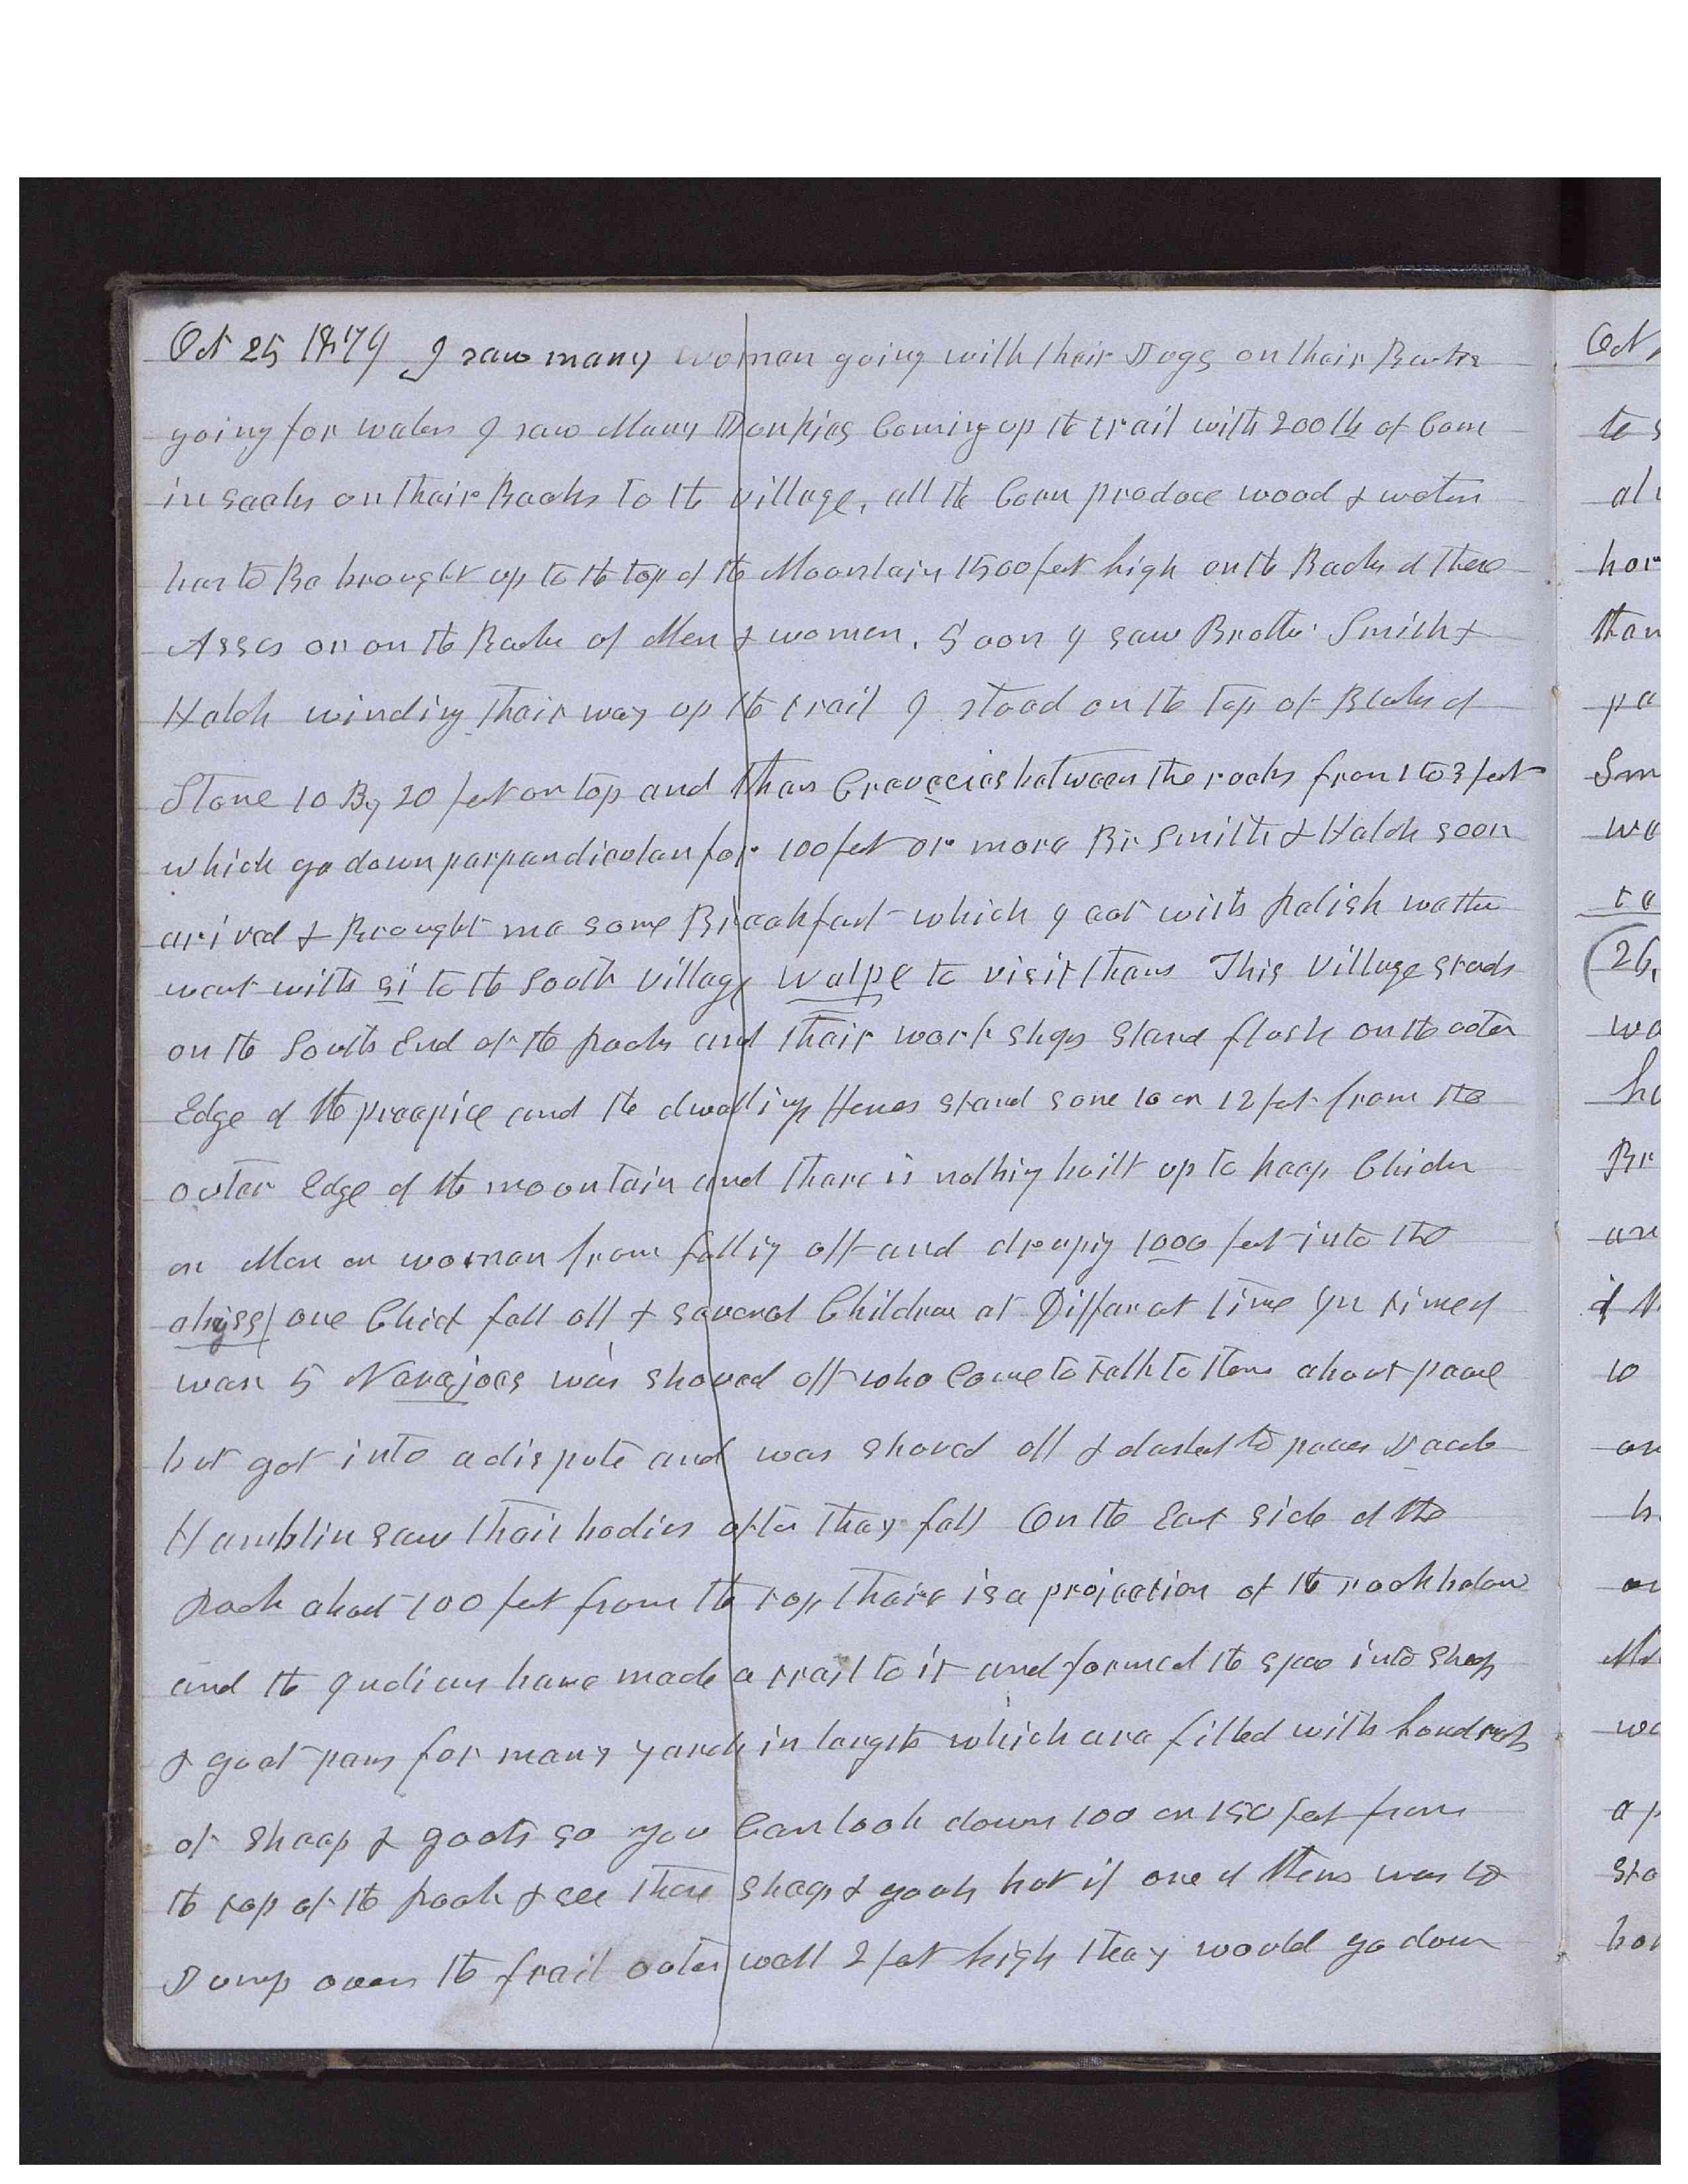 Oct 25 1879 I saw many woman going with thair Jugs on thair Backs
going for water I saw Many Donkies Coming up the trail with 200 lb of Corn
in sacks on thair Backs to the village, all the Corn produce wood & water
has to Be brought up to the top of the Mountain 1500 feet high on the Backs of these
Asses or on the Backs of Men & women. Soon I saw Brother Smith &
Hatch winding thair way up the trail I stood on the top of Blocks of
Stone 10 By 20 feet on top and than Cravecies between the rocks from 1 to 3 feet
which go down parpandicular for 100 feet or more Br Smith & Hatch soon
arived & Brought me some Breakfast which I eat with relish we then
went with us to the South village Walpe to visit them This village stands
on the South End of the Rock and thair work shops stand flush on the outer
Edge of the precpice and the dwelling Homes stand some 10 or 12 feet from the
outer Edge of the mountain and thare is nothing built up to keep Childen
or Men or woman from falling off and droping 1000 feet into the
abiss one Child fell off & several Children at Diffarat time In time of
war 5 Navajoes was shoved off who Come to talk to them about peace
but got into a dispute and was shoved off & dashed to peaces Jacob
Hamblin saw thair bodies after they fell On the East side of the
Rock about 100 feet from the top thare is a projection of the rock below
and the Indians have made a trail to it and formed the space into sheep
& goat pens for many yards in length which are filled with hundreds
of sheep & goats so you Can look down 100 or 150 feet from
the top of the Rock & see these sheep & goats but if one of them was to
Jump over the frail outer wall 2 feet high they would go down